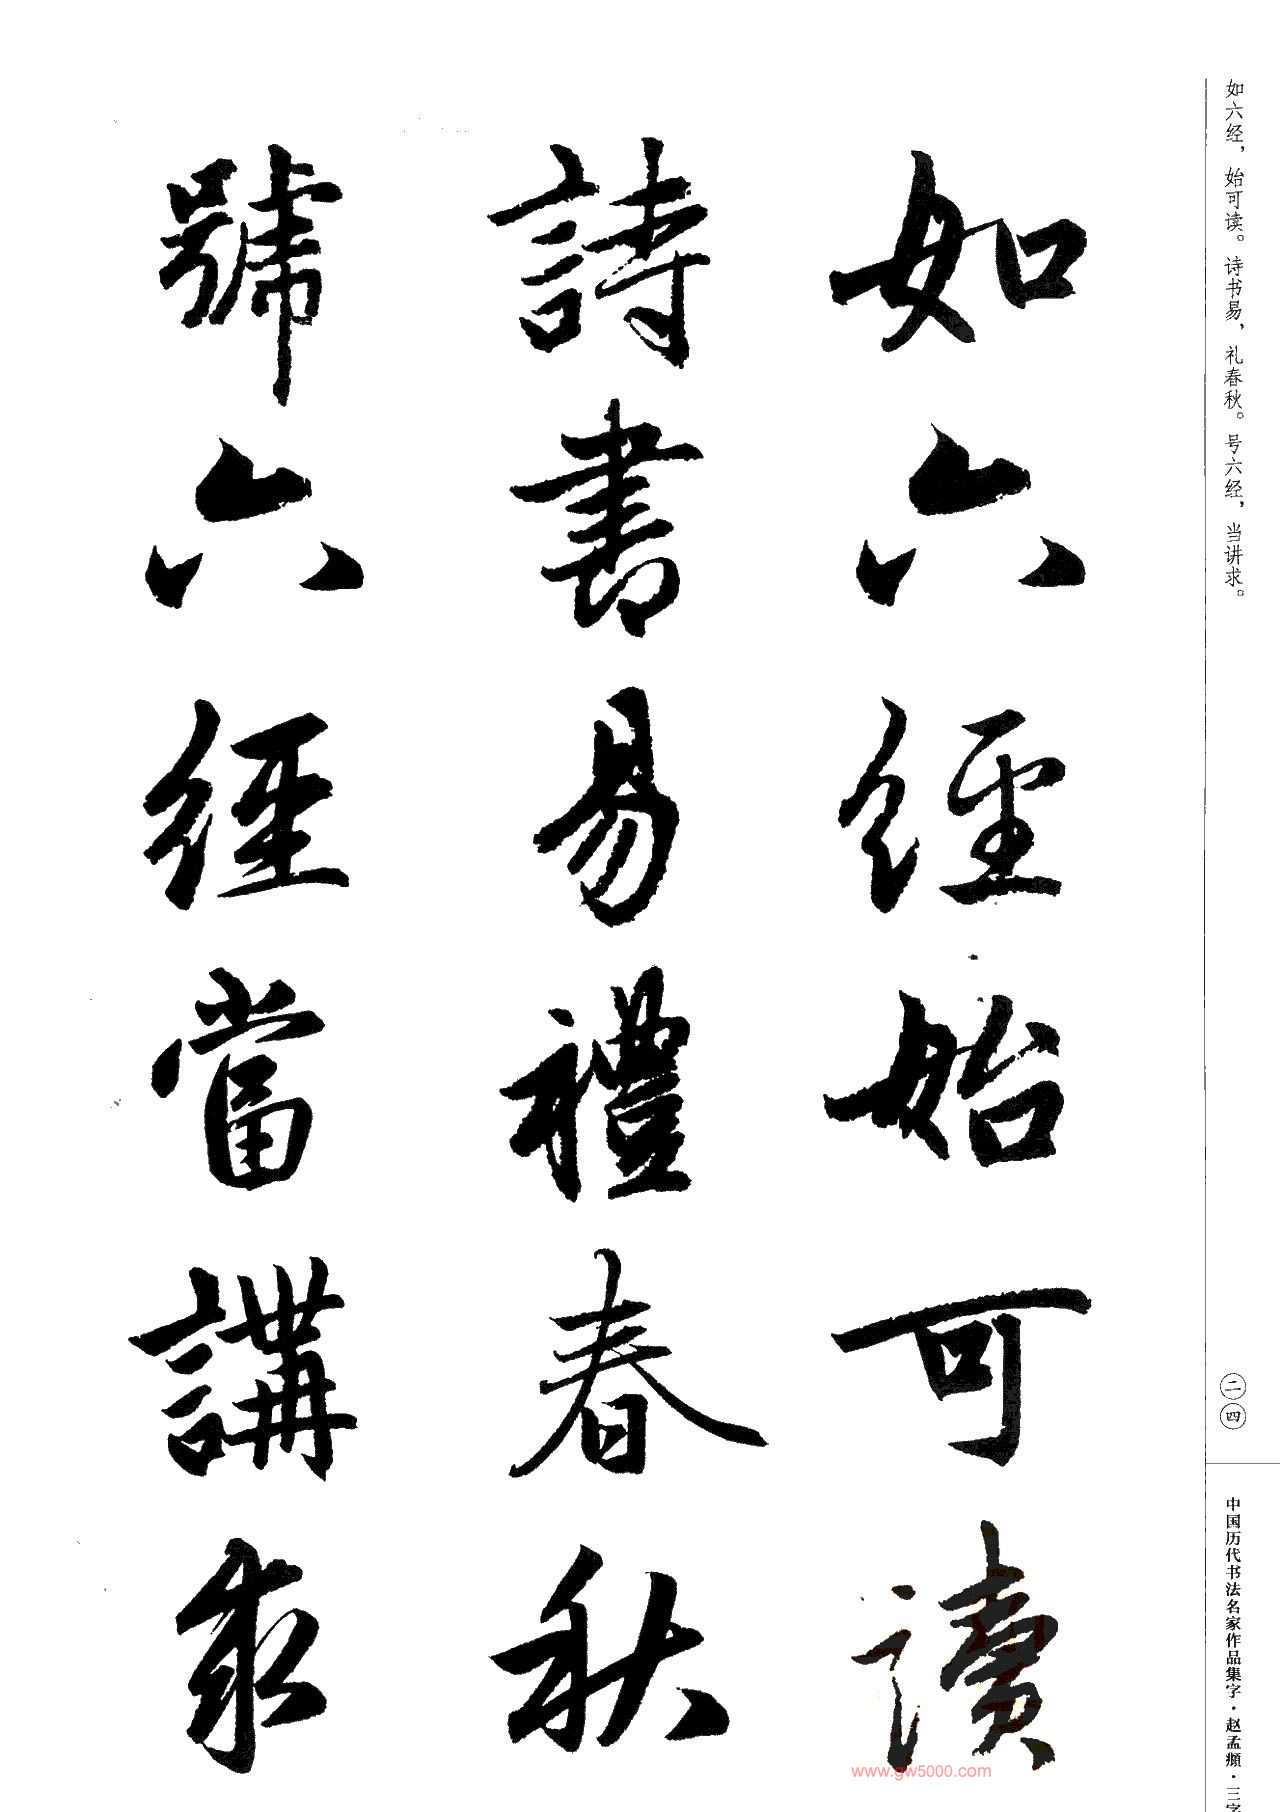 如六经，始可读。诗书易，礼春秋。号六经，当讲求。
如六經始可讀
詩書易禮春秋
號六經當講求
二四
中国历代书法名家作品集字·赵孟頫·三字
www.gw5000.com